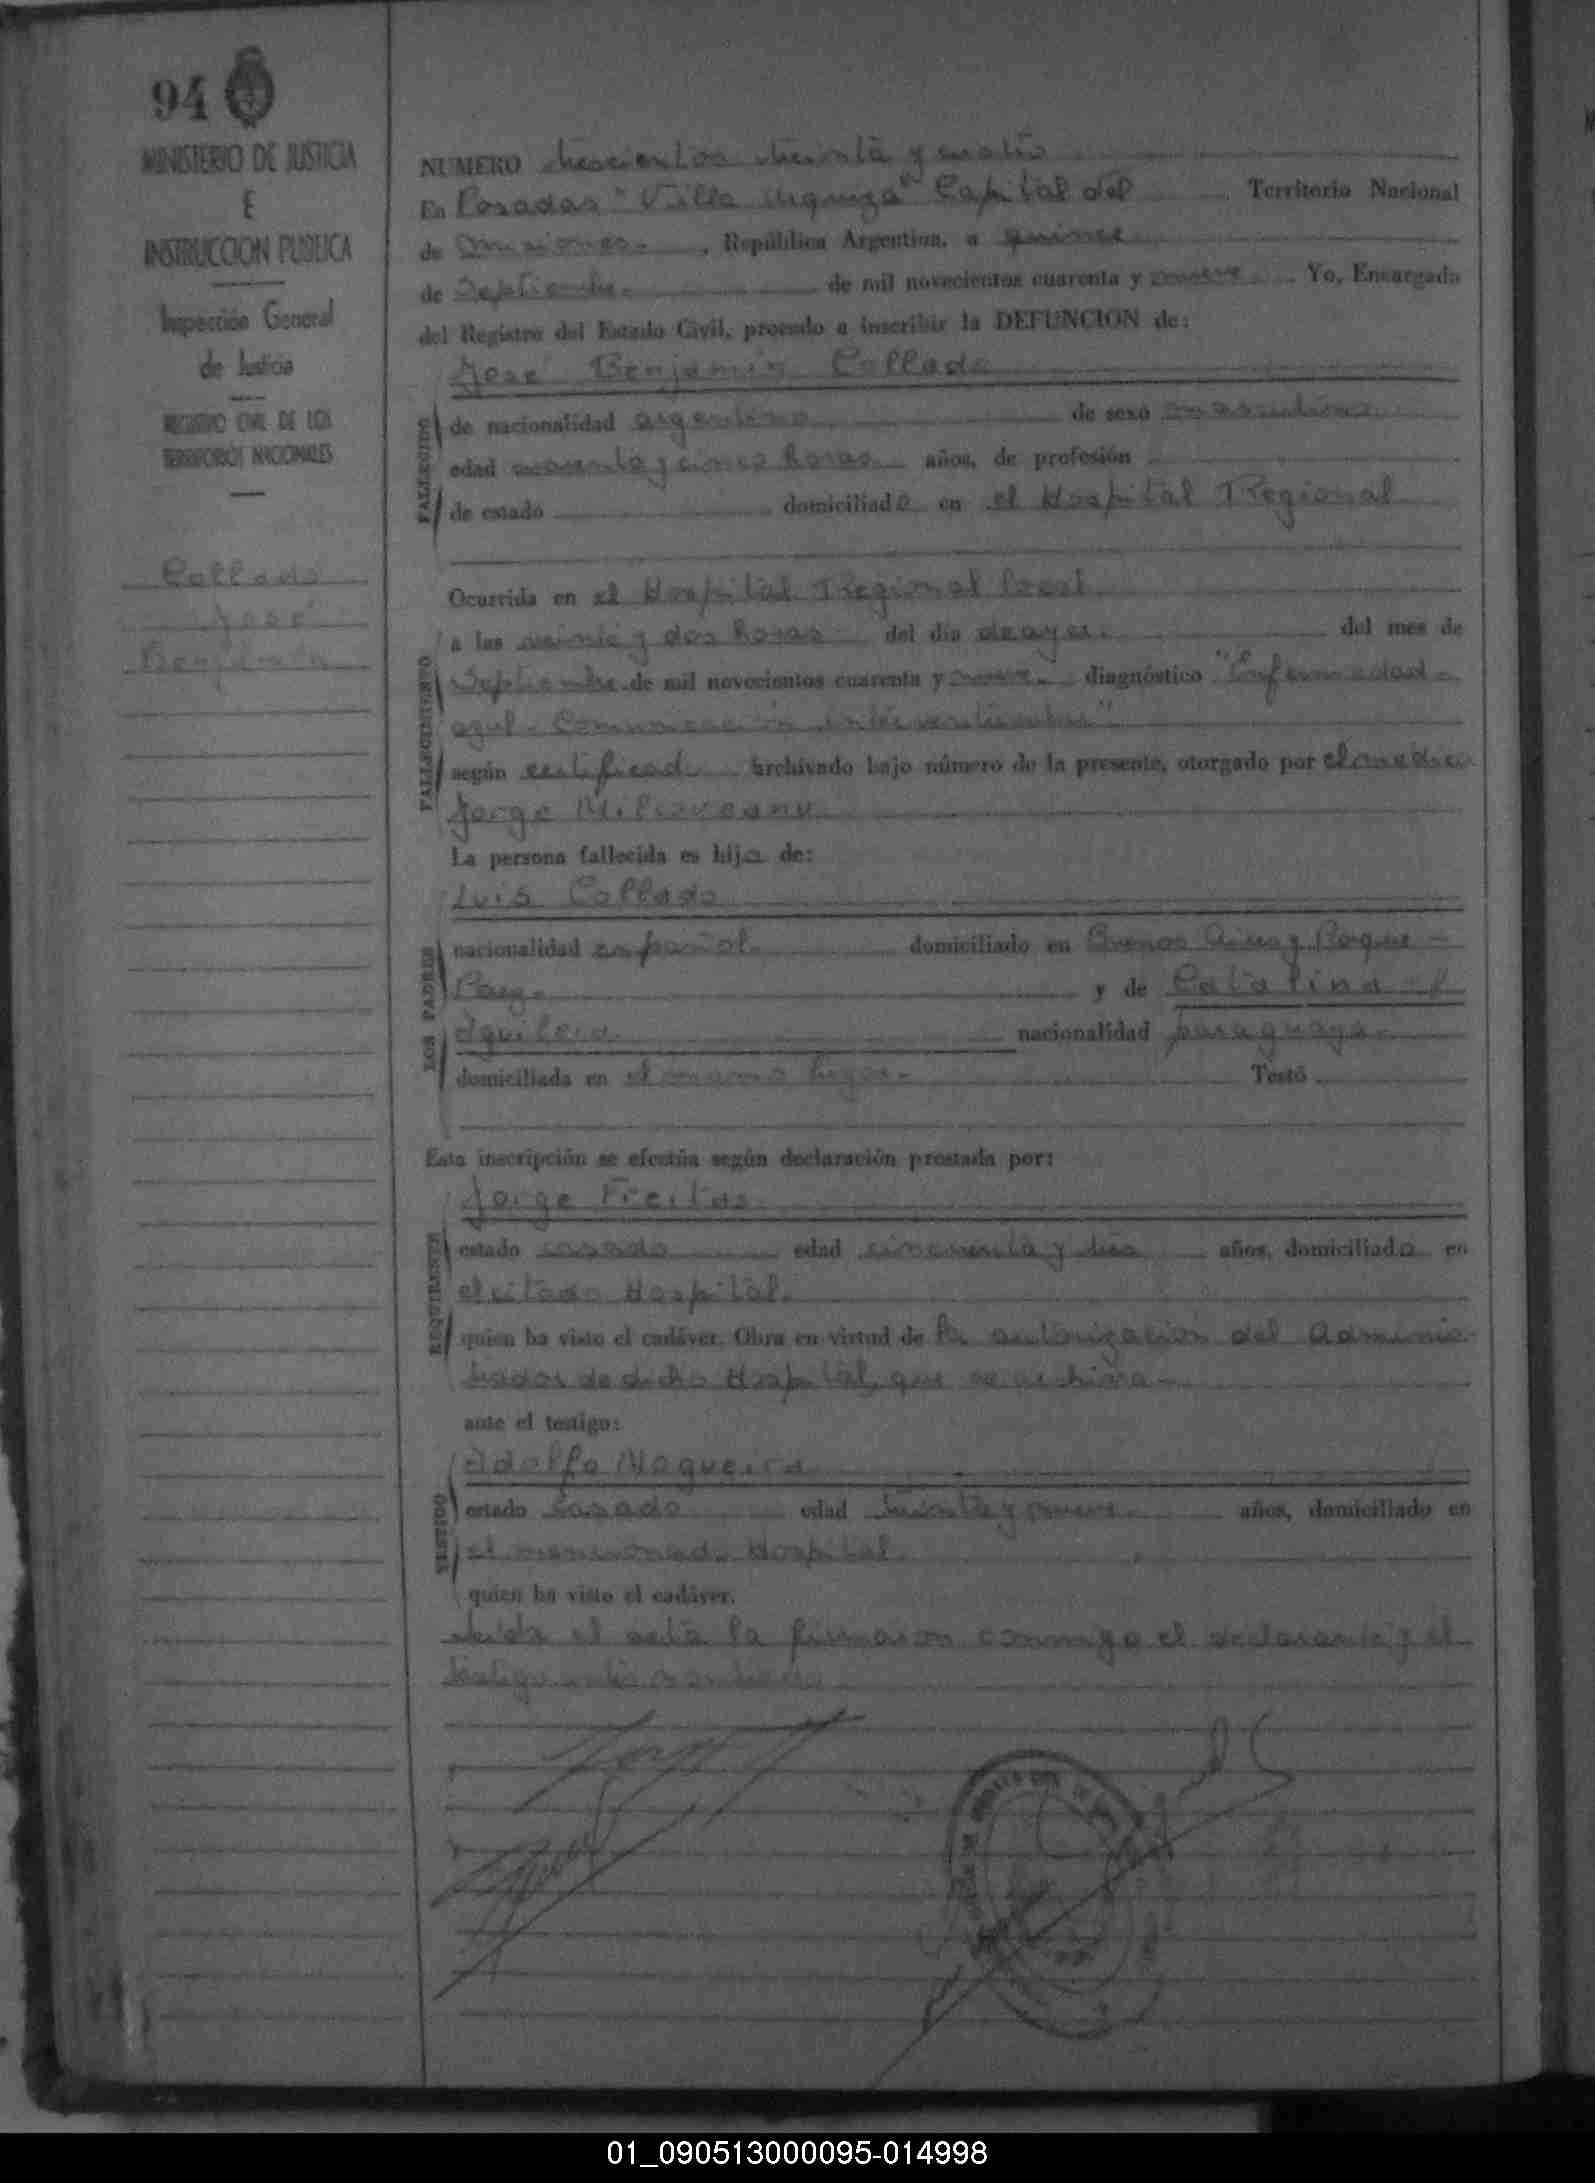 94
MINISTERIO DE JUSTICIA
E
INSTRUCCION PUBLICA
Inspección General
de Justicia
REGISTRO CIVIL DE LOS
TERRITORIOS NACIONALES
Collado
José
Benjamín
NUMERO trescientos treinta y cuatro
En Posadas "Villa Urquiza" Capital del Territorio Nacional
de Misiones. , República Argentina, a quince
de Septiembre. de mil novecientos cuarenta y nueve. Yo, Encargado
del Registro del Estado Civil, procedo a inscribir la DEFUNCION de:
José Benjamín Collado
FALLECIDO
de nacionalidad argentino de sexo masculino
edad cuarenta y cinco horas años, de profesión
de estado domiciliado en el Hospital Regional
FALLECIMIENTO
Ocurrida en el Hospital Regional local
a las veinte y dos horas del día de ayer. del mes de
Septiembre de mil novecientos cuarenta y nueve. diagnóstico "Enfermedad
azul - Comunicación interventricular"
según certificado archivado bajo número de la presente, otorgado por el médico
Jorge
La persona fallecida es hijo de:
LOS PADRES
Luis Collado
nacionalidad español. domiciliado en Buenos Aires y Roque
y de Catalina
Aguilera nacionalidad paraguaya.
domiciliada en el mismo lugar. Testó
Esta inscripción se efectúa según declaración prestada por:
REQUIRENTE
Jorge Freitas
estado casado edad cincuenta y tres años, domiciliado en
el citado Hospital.
quien ha visto el cadáver. Obra en virtud de la autorización del Adminis-
trador de dicho Hospital, que se archiva
ante el testigo:
TESTIGO
Adolfo Nogueira
estado casado edad treinta y nueve años, domiciliado en
el mencionado Hospital
quien ha visto el cadáver.
Leída el acta la firmaron conmigo el declarante y el
testigo
01_090513000095-014998